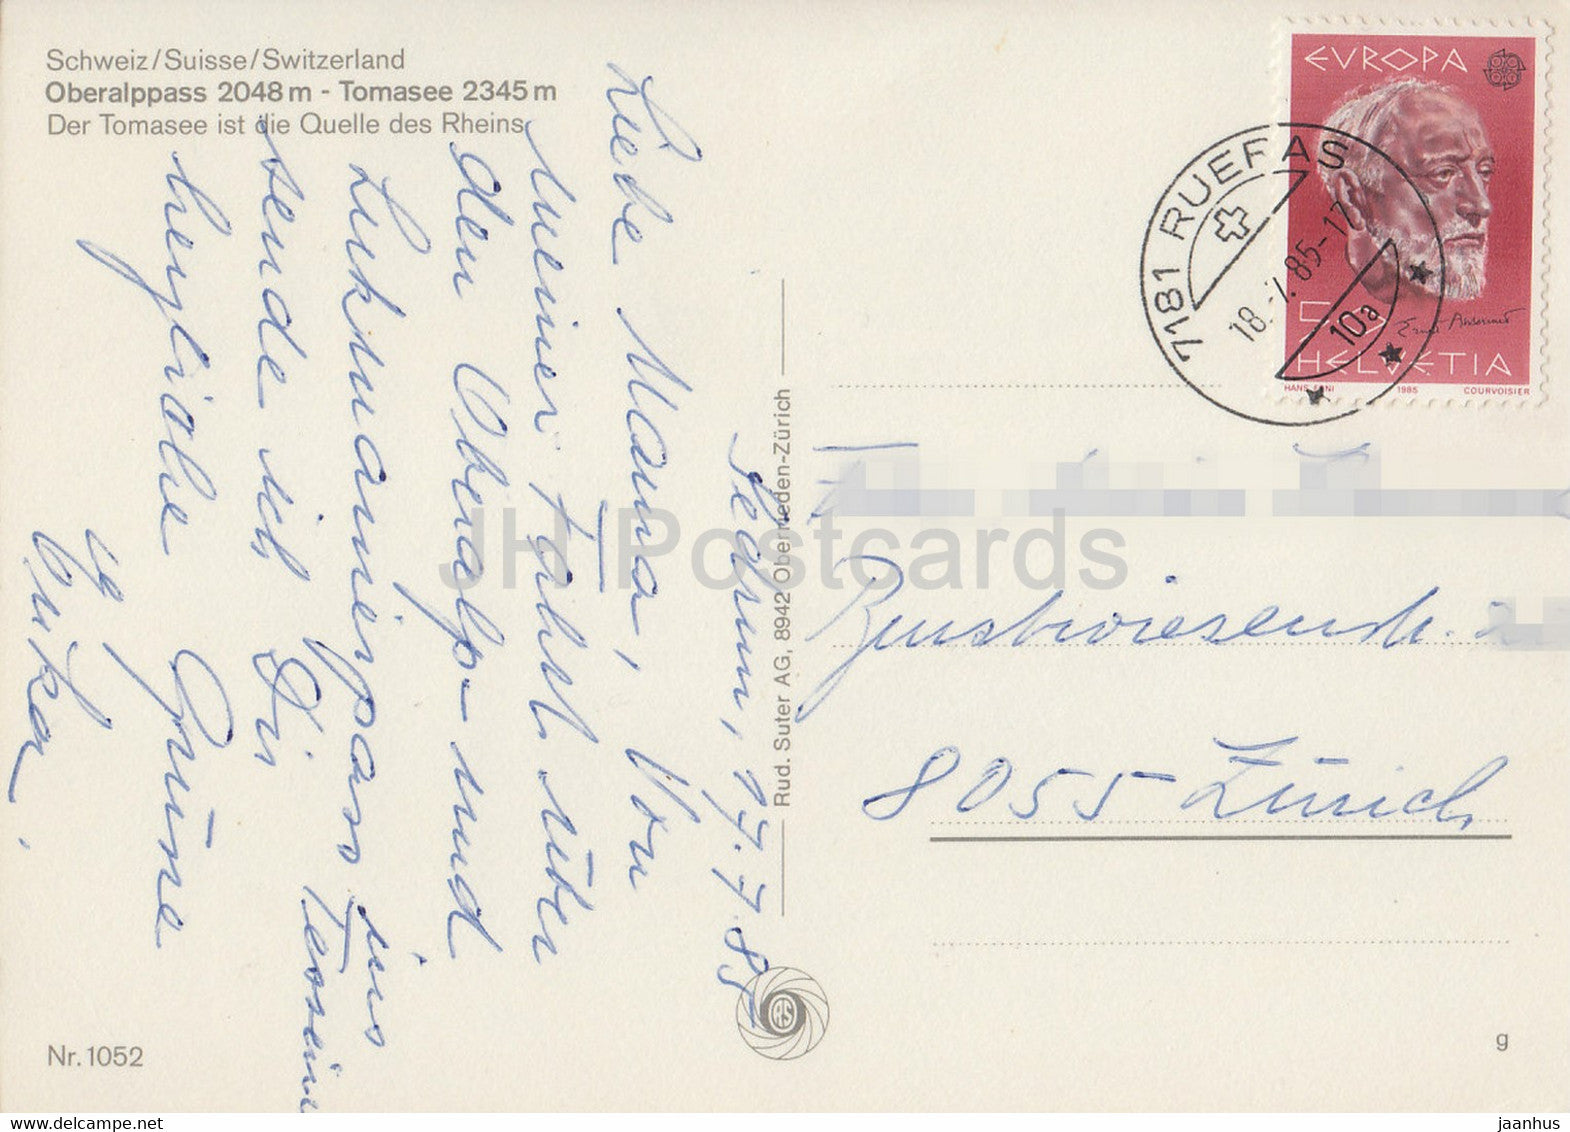 Schweiz/Suisse/Switzerland
Oberalppass 2048 m - Tomasee 2345 m
Der Tomasee ist die Quelle des Rheins
Sedrun, 17.7.85
Liebe Mama, Von
meiner Fahrt über
den Oberalp- und
Lukmanierpass ins Tessin
sende ich Dir
herzliche Grüsse
EVROPA
HELVETIA
HANS ERNI 1985 COURVOISIER
7181 RUERAS
18.-7.85-17
10a
8055 Zürich
Rud. Suter AG, 8942 Oberrieden-Zürich
RS
Nr. 1052
g
JH Postcards
www.delcampe.net
jaanhus